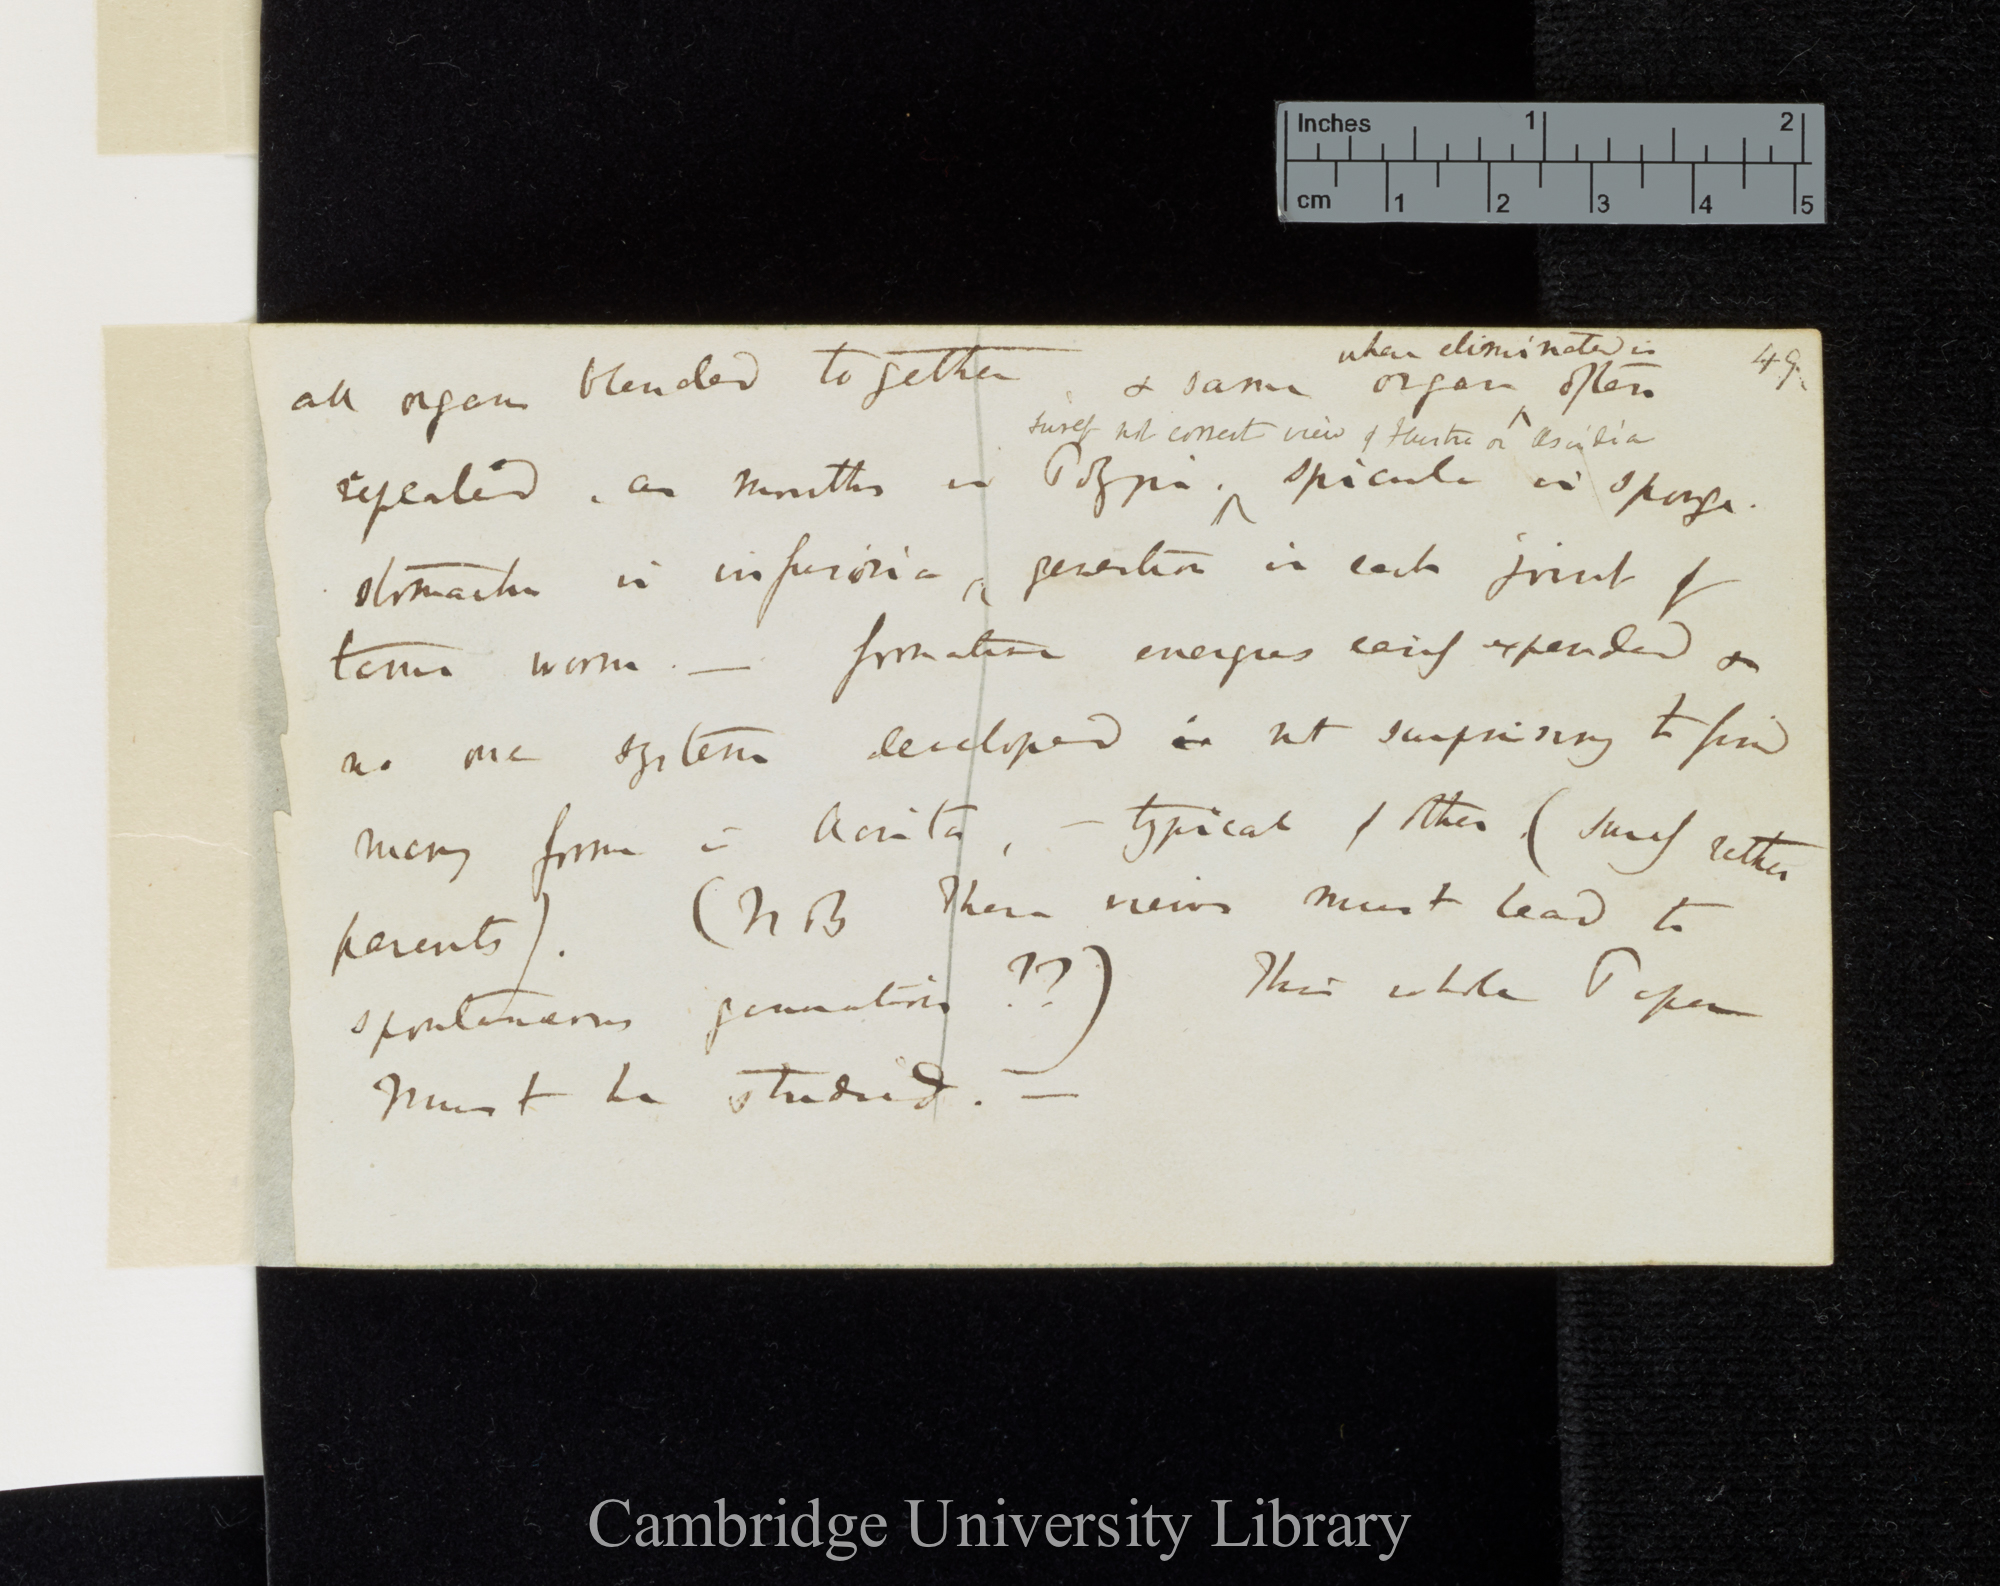 Inches 1 2
cm 1 2 3 4 5
49.
when eliminated is
all organs blended together, & same organ often
surely not correct view of Flustra or Ascidia
repeated, as mouths in Polypi. spicula in sponge.
stomachs in infusoria, generation in each joint of
tænia worm. — formative energies easily expended &
no one system developed is not surprising to find
many forms in Acrita, — typical of other (surely rather
parents). (NB These views must lead to
spontaneous generation ??) This whole Paper
must be studied. —
Cambridge University Library